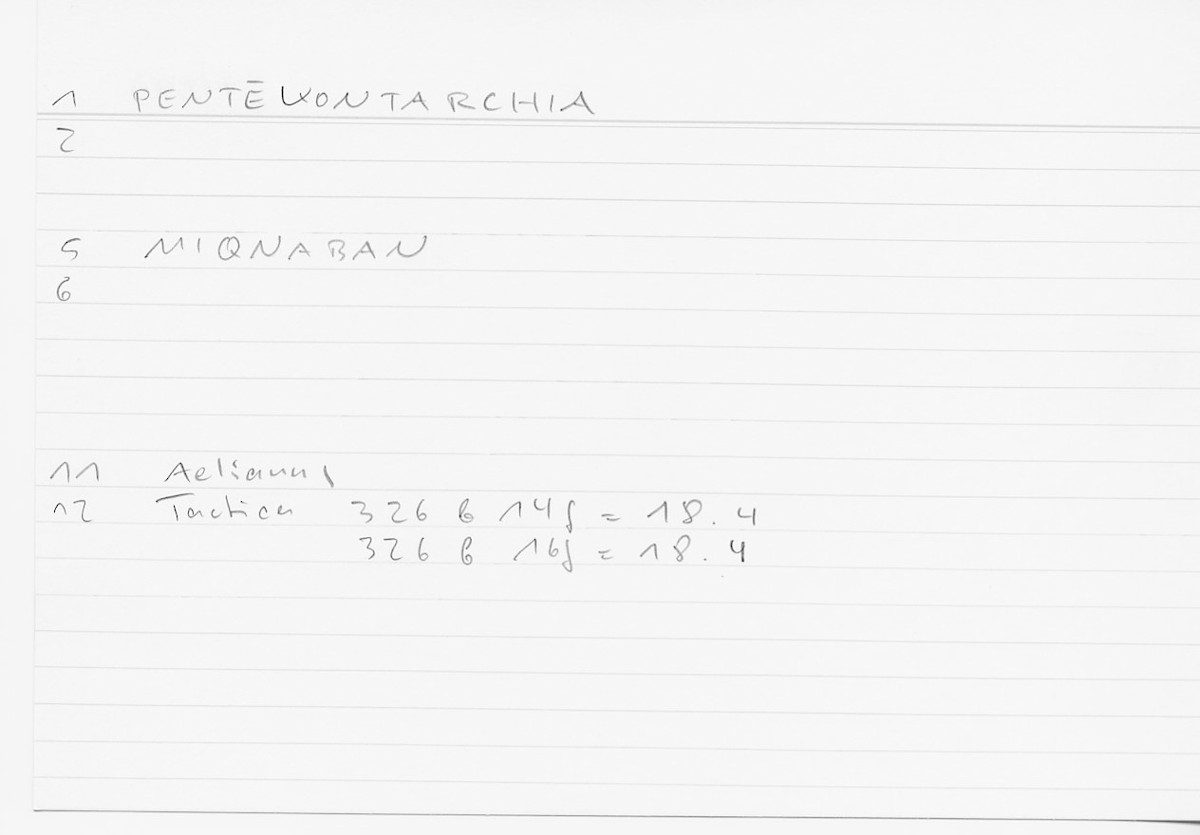 1 PENTĒKONTARCHIA
2
5 MIQNABAN
6
11 Aelianus
12 Tactica 326 b 14f = 18.4
326 b 16f = 18.4